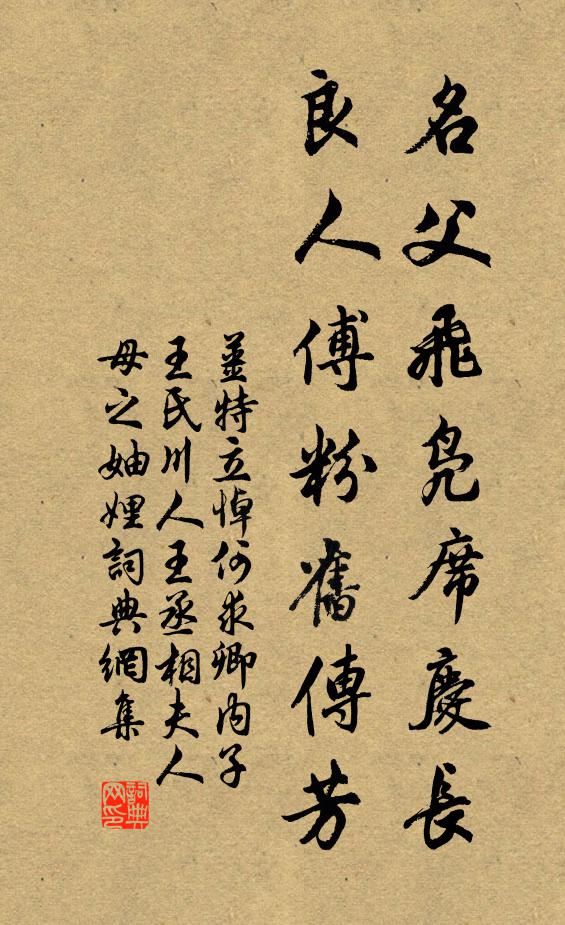 名父飛鳧席慶長
良人傅粉舊傳芳
薑特立悼何求卿内子
王氏川人王丞相夫人
母之妯娌詞典網集
詞典网印